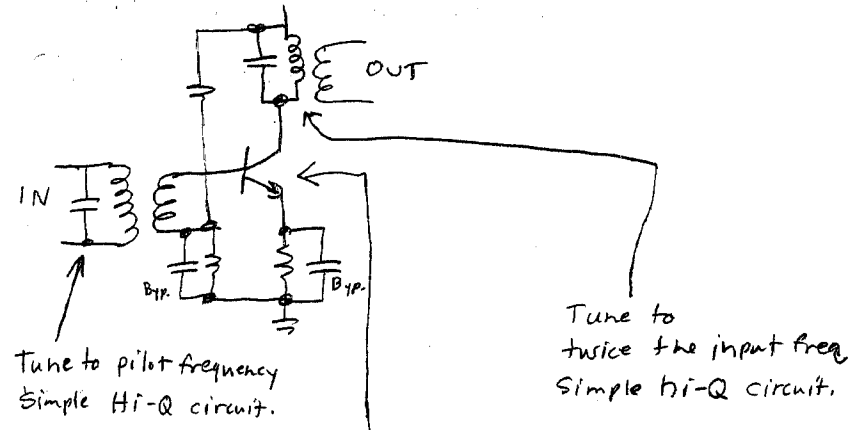 OUT
IN
Byp.
Byp.
Tune to pilot frequency
Simple Hi-Q circuit.
Tune to
twice the input freq
Simple hi-Q circuit.